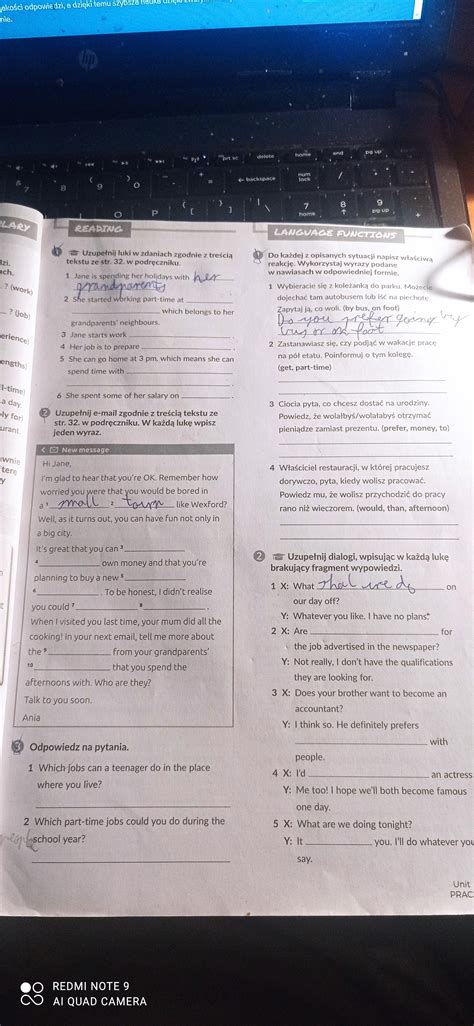 ybkości odpowiedzi, a dzięki temu szybsza nauka
nie.
hp
prt sc delete home end pg up
backspace num lock /
8 9 0
7 home 8 9 pg up
O P { [ } ]
LARY
zi.
ach.
? (work)
? (job)
erience)
engths)
l-time)
a day.
ly for)
urant.
wnie
tere
y
READING
1 Uzupełnij luki w zdaniach zgodnie z treścią
tekstu ze str. 32. w podręczniku.
1 Jane is spending her holidays with her
grandparents
2 She started working part-time at
which belongs to her
grandparents' neighbours.
3 Jane starts work
4 Her job is to prepare
5 She can go home at 3 pm, which means she can
spend time with
6 She spent some of her salary on
2 Uzupełnij e-mail zgodnie z treścią tekstu ze
str. 32. w podręczniku. W każdą lukę wpisz
jeden wyraz.
New message
Hi Jane,
I'm glad to hear that you're OK. Remember how
worried you were that you would be bored in
a 1 small 2 town like Wexford?
Well, as it turns out, you can have fun not only in
a big city.
It's great that you can 3
4 own money and that you're
planning to buy a new 5
6 . To be honest, I didn't realise
you could 7 8 .
When I visited you last time, your mum did all the
cooking! In your next email, tell me more about
the 9 from your grandparents'
10 that you spend the
afternoons with. Who are they?
Talk to you soon.
Ania
3 Odpowiedz na pytania.
1 Which jobs can a teenager do in the place
where you live?
2 Which part-time jobs could you do during the
school year?
LANGUAGE FUNCTIONS
1 Do każdej z opisanych sytuacji napisz właściwą
reakcję. Wykorzystaj wyrazy podane
w nawiasach w odpowiedniej formie.
1 Wybieracie się z koleżanką do parku. Możecie
dojechać tam autobusem lub iść na piechotę.
Zapytaj ją, co woli. (by bus, on foot)
Do you prefer going by
on
2 Zastanawiasz się, czy podjąć w wakacje pracę
na pół etatu. Poinformuj o tym kolegę.
(get, part-time)
3 Ciocia pyta, co chcesz dostać na urodziny.
Powiedz, że wolałbyś/wolałabyś otrzymać
pieniądze zamiast prezentu. (prefer, money, to)
4 Właściciel restauracji, w której pracujesz
dorywczo, pyta, kiedy wolisz pracować.
Powiedz mu, że wolisz przychodzić do pracy
rano niż wieczorem. (would, than, afternoon)
2 Uzupełnij dialogi, wpisując w każdą lukę
brakujący fragment wypowiedzi.
1 X: What shal we do on
our day off?
Y: Whatever you like. I have no plans.
2 X: Are for
the job advertised in the newspaper?
Y: Not really, I don't have the qualifications
they are looking for.
3 X: Does your brother want to become an
accountant?
Y: I think so. He definitely prefers
with
people.
4 X: I'd an actress.
Y: Me too! I hope we'll both become famous
one day.
5 X: What are we doing tonight?
Y: It you. I'll do whatever you
say.
Unit
PRAC
REDMI NOTE 9
AI QUAD CAMERA